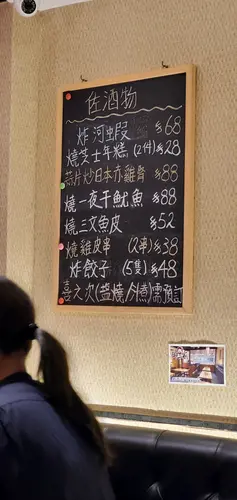 佐酒物
炸河虫叚 $68
燒芝士年糕 (2件) $28
蒜片炒日本赤雞腎 $88
燒一夜干魷魚 $88
燒三文魚皮 $52
燒雞皮串 (2串) $38
炸餃子 (5隻) $48
喜之次(盐燒/煮)需預訂